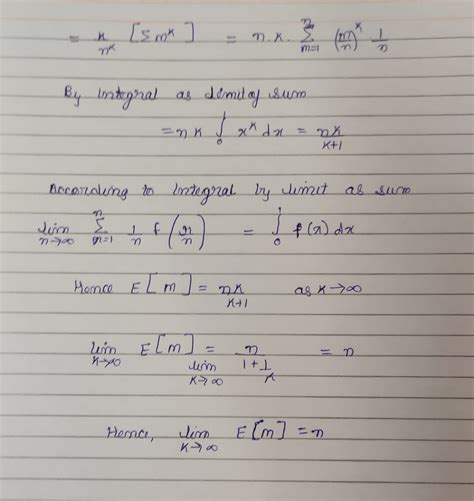 = k/n^k [Σm^k] = n.k. Σ_{m=1}^{n} (m/n)^k 1/n
By integral as limit of sum
= nk ∫_0^1 x^k dx = nk/k+1
According to Integral by limit as sum
lim_{n→∞} Σ_{m=1}^{n} 1/n f(n/n) = ∫_0^1 f(x) dx
Hence E[m] = nk/k+1 as k→∞
lim_{k→∞} E[m] = n / lim_{k→∞} 1+1/k = n
Hence, lim_{k→∞} E[m] = n